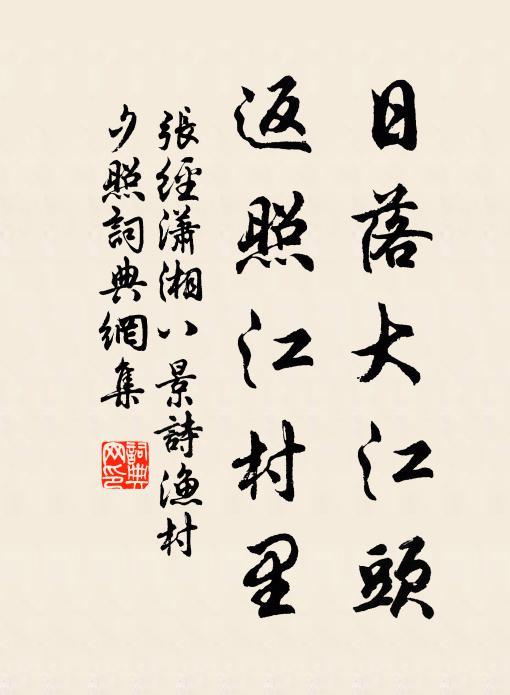 日落大江頭
返照江村里
張經瀟湘八景詩漁村
夕照詞典網集
詞典网印